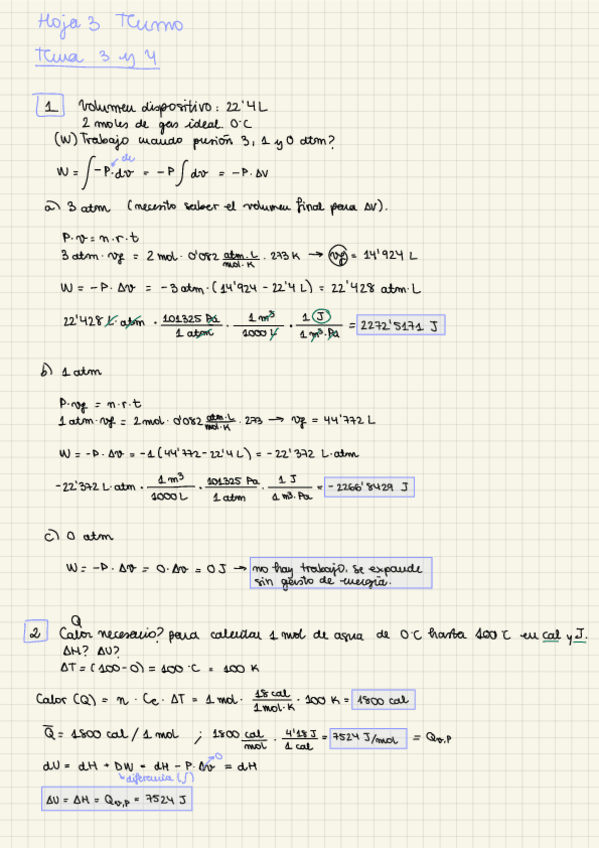 Hoja 3 Termo
Tema 3 y 4
1 Volumen dispositivo: 22'4 L
2 moles de gas ideal. 0°C
(W) Trabajo cuando presión 3, 1 y 0 atm?
W = ∫ -P · dv = -P ∫ dv = -P · ΔV
a) 3 atm (necesito saber el volumen final para ΔV).
P · v = n · r · t
3 atm · vf = 2 mol · 0'082 atm·L/mol·K · 273 K → vf = 14'924 L
W = -P · ΔV = -3 atm · (14'924 - 22'4 L) = 22'428 atm · L
22'428 L · atm · 101325 Pa/1 atm · 1 m³/1000 L · 1 J/1 m³·Pa = 2272'5171 J
b) 1 atm
P · vf = n · r · t
1 atm · vf = 2 mol · 0'082 atm·L/mol·K · 273 → vf = 44'772 L
W = -P · ΔV = -1 (44'772 - 22'4 L) = -22'372 L·atm
-22'372 L·atm · 1 m³/1000 L · 101325 Pa/1 atm · 1 J/1 m³·Pa = -2266'8429 J
c) 0 atm
W = -P · ΔV = 0 · ΔV = 0 J → no hay trabajo, se expande
sin gasto de energía.
Q
2 Calor necesario? para calentar 1 mol de agua de 0°C hasta 100°C en cal y J.
ΔH? ΔU?
ΔT = (100-0) = 100 °C = 100 K
Calor (Q) = n · Ce · ΔT = 1 mol · 18 cal/1 mol·K · 100 K = 1800 cal
Q̅ = 1800 cal / 1 mol ; 1800 cal/mol · 4'18 J/1 cal = 7524 J/mol = Qv,p
dU = dH + DW = dH - P · Δv = dH
0
diferencia (∫)
ΔU = ΔH = Qv,p = 7524 J